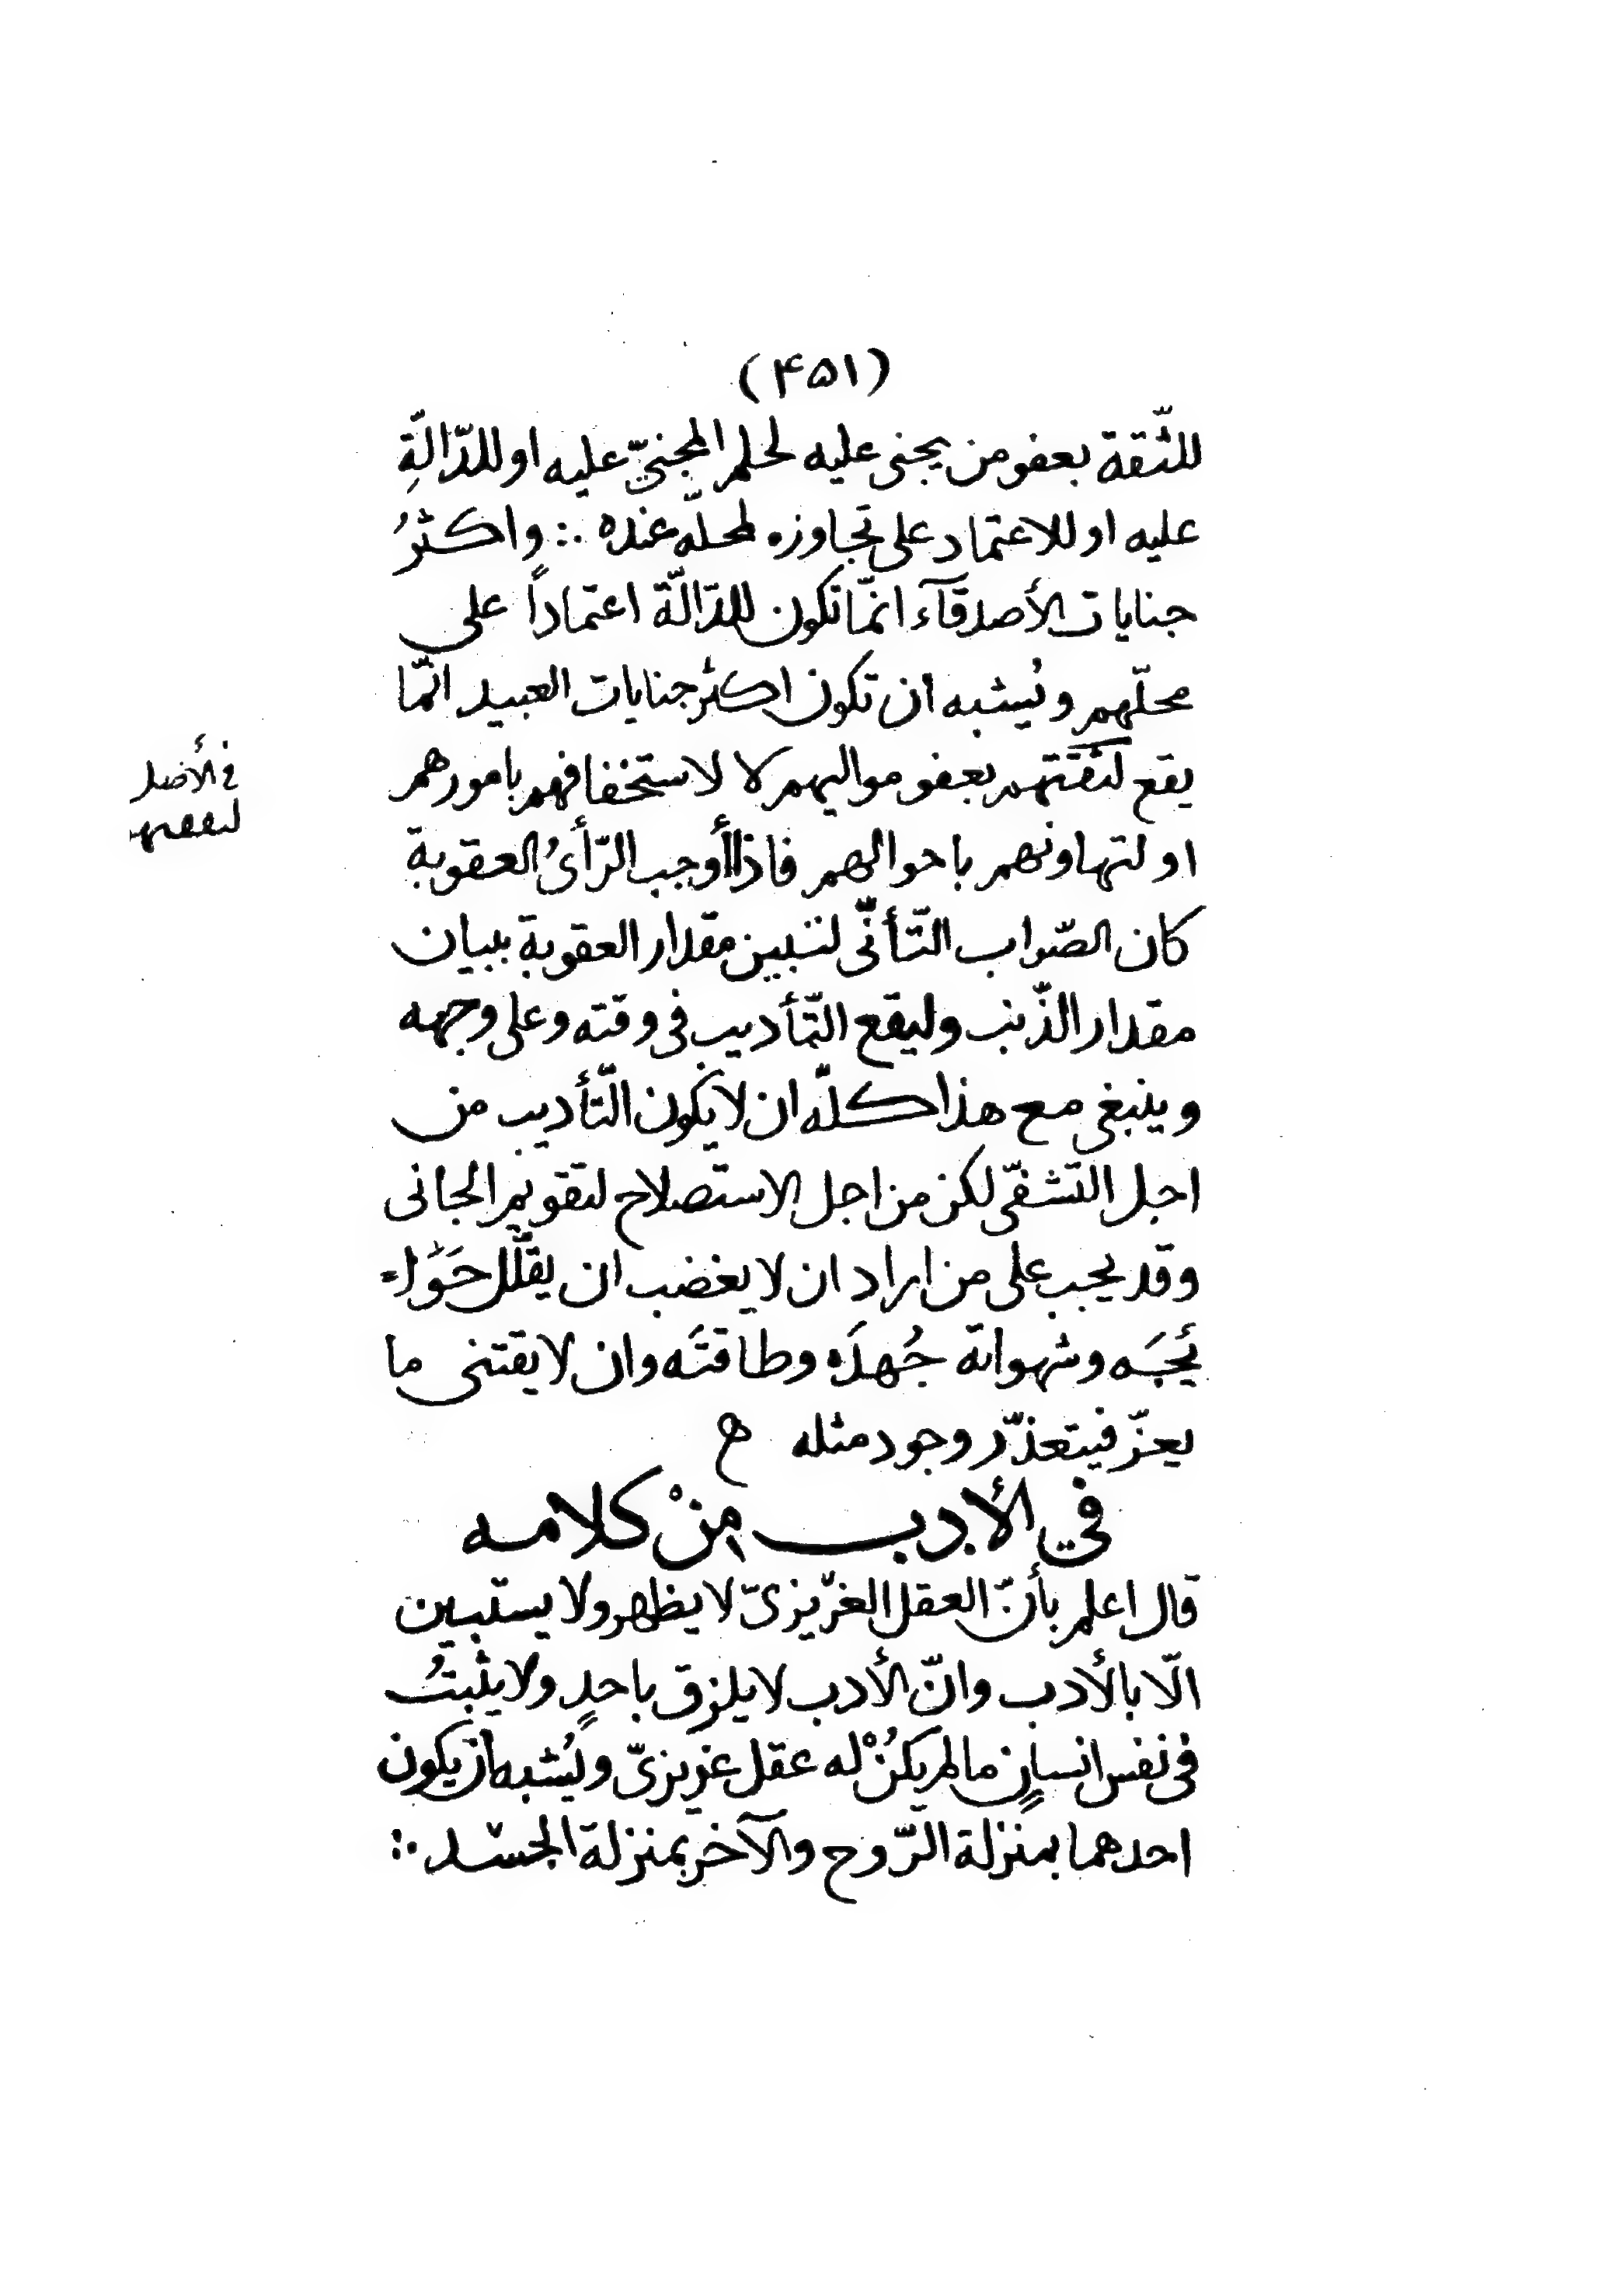 (۴۵۱)
للثّقة بعفو من يجنى عليه لحلم المجنىّ عليه او للدّالّةِ
عليه او للاعتماد على تجاوزه لمحلّه عنده ∴ واكثرُ
جنايات الأصدقآء انّما تكون للدّالّة اعتماداً على
محلّهم ويُشبه ان تكون اكثر جنايات العبيد انّما
يقع لثقتهم بعفو مواليهم لا لاستخفافهم بامورهم
فى الأصل
لىعىهم
او لتهاونهم باحوالهم فاذا أوجب الرّأىُ العقوبة
كان الصّواب التّأنّى لتبين مقدار العقوبة ببيان
مقدار الذّنب وليقع التّأديب فى وقته وعلى وجهه
وينبغى مع هذا كلّه ان لا يكون التّأديب من
اجل التشفّى لكن من اجل الاستصلاح لتقويم الجانى
وقد يجب على من اراد ان لا يغضب ان يقلّل حَوَاء
يُحبَه وشهواته جُهدَه وطاقتَه وان لا يقتنى ما
يعزّ فيتعذّر وجود مثله ه
في الأدب من كلامه
قال اعلم بأنّ العقل الغريزىّ لا يظهر ولا يستبين
الّا بالأدب وانّ الأدب لا يلزق باحدٍ ولا يثبتُ
فى نفس انسانٍ ما لم يكنْ له عقل غريزىّ ويُشبه ان يكون
احدهما بمنزلة الرّوح والآخر بمنزلة الجسد ∴